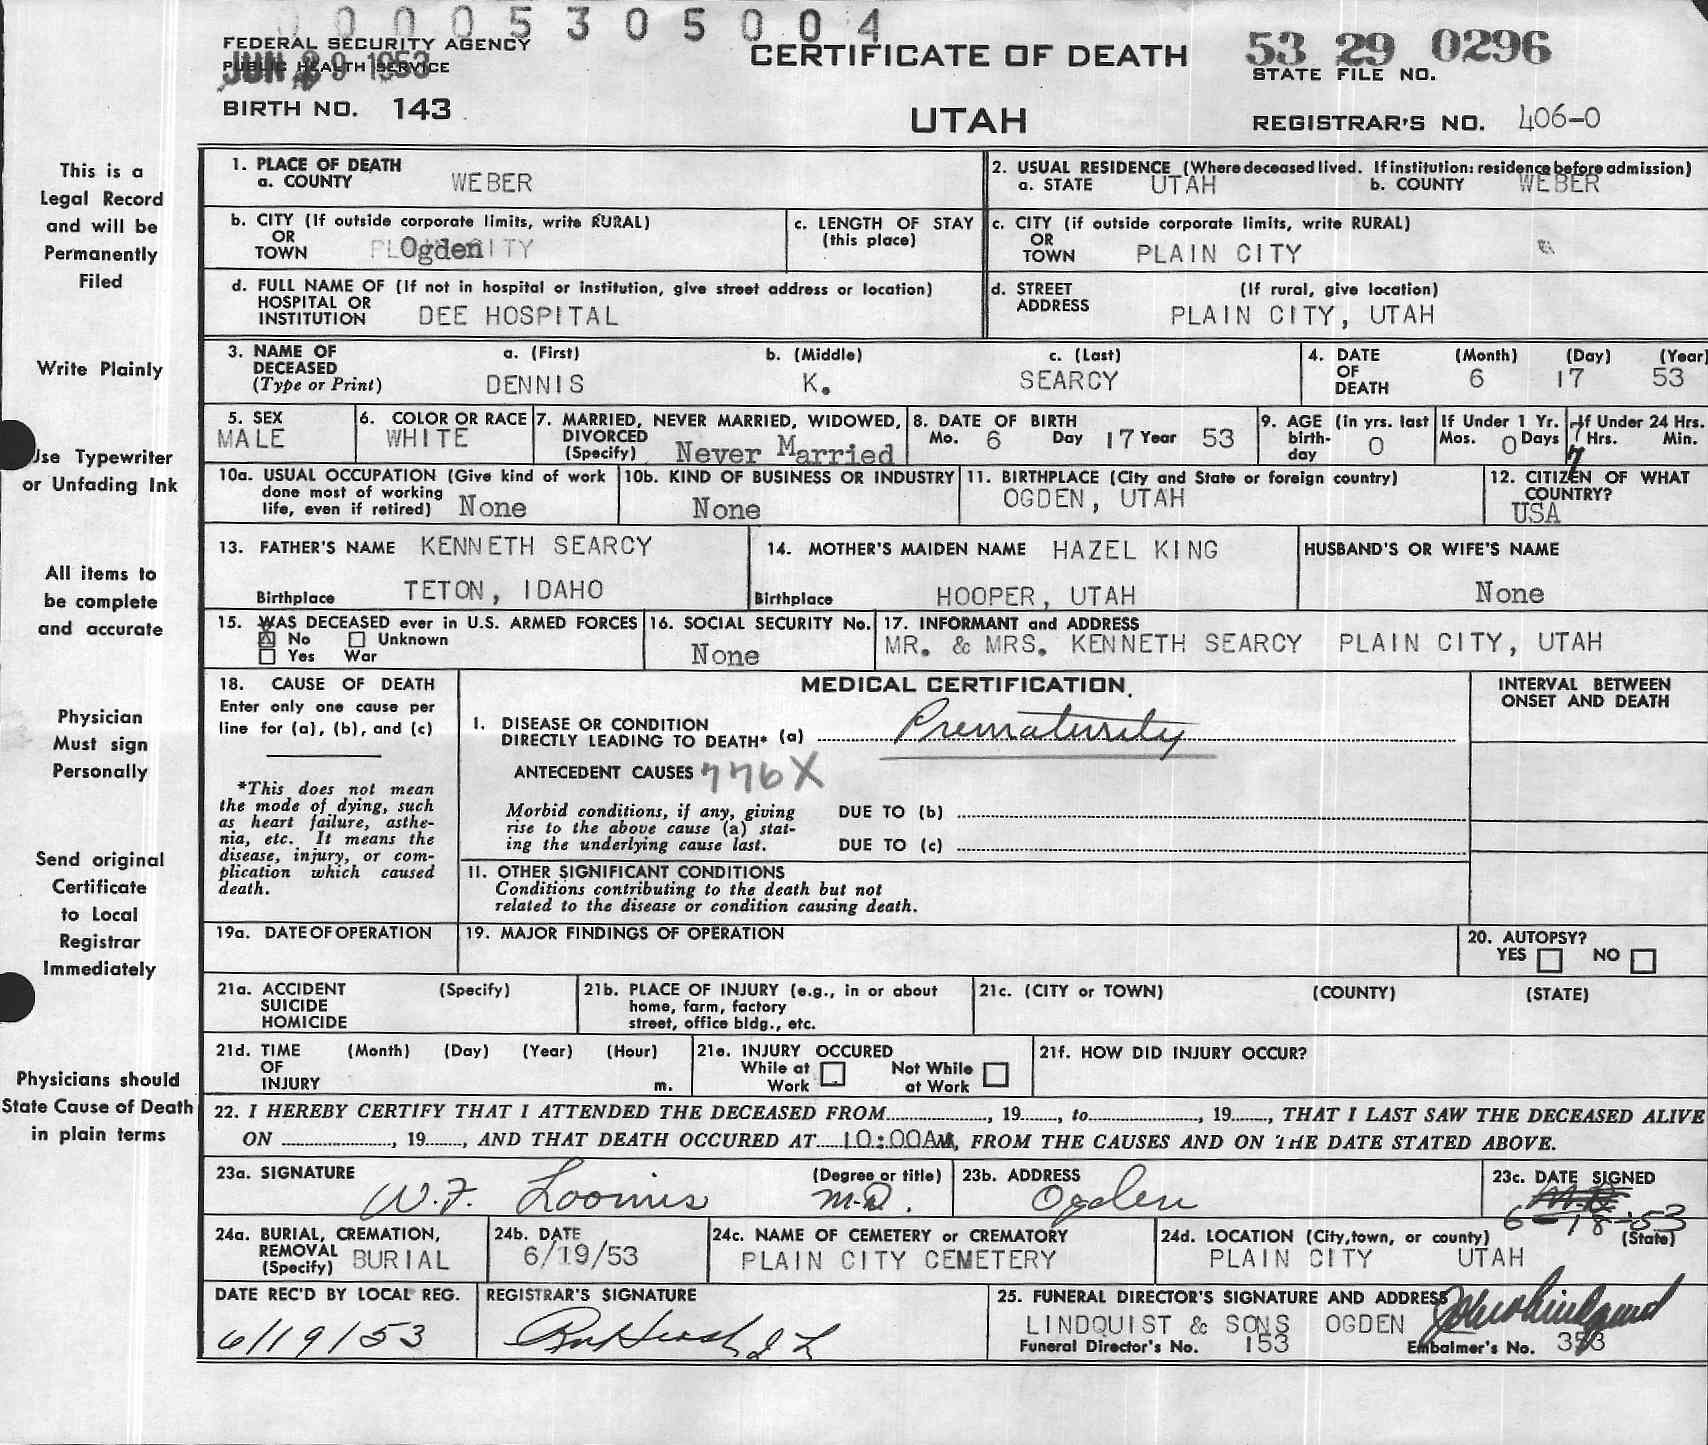 0005305004
FEDERAL SECURITY AGENCY
PUBLIC HEALTH SERVICE
JUN 29 1953
CERTIFICATE OF DEATH
53 29 0296
STATE FILE NO.
BIRTH NO. 143
UTAH
REGISTRAR'S NO. 406-0
This is a
Legal Record
and will be
Permanently
Filed
Write Plainly
Use Typewriter
or Unfading Ink
All items to
be complete
and accurate
Physician
Must sign
Personally
Send original
Certificate
to Local
Registrar
Immediately
Physicians should
State Cause of Death
in plain terms
1. PLACE OF DEATH
a. COUNTY WEBER
2. USUAL RESIDENCE (Where deceased lived. If institution: residence before admission)
a. STATE UTAH b. COUNTY WEBER
b. CITY (If outside corporate limits, write RURAL)
OR
TOWN Ogden
c. LENGTH OF STAY
(this place)
c. CITY (if outside corporate limits, write RURAL)
OR
TOWN PLAIN CITY
d. FULL NAME OF (If not in hospital or institution, give street address or location)
HOSPITAL OR
INSTITUTION DEE HOSPITAL
d. STREET (If rural, give location)
ADDRESS PLAIN CITY, UTAH
3. NAME OF a. (First) b. (Middle) c. (Last)
DECEASED
(Type or Print) DENNIS K. SEARCY
4. DATE (Month) (Day) (Year)
OF 6 17 53
DEATH
5. SEX
MALE
6. COLOR OR RACE
WHITE
7. MARRIED, NEVER MARRIED, WIDOWED,
DIVORCED
(Specify) Never Married
8. DATE OF BIRTH
Mo. 6 Day 17 Year 53
9. AGE (in yrs. last
birth-
day 0
If Under 1 Yr.
Mos. 0 Days
If Under 24 Hrs.
7 Hrs. Min.
10a. USUAL OCCUPATION (Give kind of work
done most of working
life, even if retired) None
10b. KIND OF BUSINESS OR INDUSTRY
None
11. BIRTHPLACE (City and State or foreign country)
OGDEN, UTAH
12. CITIZEN OF WHAT
COUNTRY?
USA
13. FATHER'S NAME KENNETH SEARCY
Birthplace TETON, IDAHO
14. MOTHER'S MAIDEN NAME HAZEL KING
Birthplace HOOPER, UTAH
HUSBAND'S OR WIFE'S NAME
None
15. WAS DECEASED ever in U.S. ARMED FORCES
X No Unknown
Yes War
16. SOCIAL SECURITY No.
None
17. INFORMANT and ADDRESS
MR. & MRS. KENNETH SEARCY PLAIN CITY, UTAH
18. CAUSE OF DEATH
Enter only one cause per
line for (a), (b), and (c)
*This does not mean
the mode of dying, such
as heart failure, asthe-
nia, etc. It means the
disease, injury, or com-
plication which caused
death.
MEDICAL CERTIFICATION
INTERVAL BETWEEN
ONSET AND DEATH
I. DISEASE OR CONDITION
DIRECTLY LEADING TO DEATH* (a) Prematurity
ANTECEDENT CAUSES 776X
Morbid conditions, if any, giving
rise to the above cause (a) stat-
ing the underlying cause last.
DUE TO (b)
DUE TO (c)
II. OTHER SIGNIFICANT CONDITIONS
Conditions contributing to the death but not
related to the disease or condition causing death.
19a. DATE OF OPERATION
19. MAJOR FINDINGS OF OPERATION
20. AUTOPSY?
YES NO
21a. ACCIDENT (Specify)
SUICIDE
HOMICIDE
21b. PLACE OF INJURY (e.g., in or about
home, farm, factory
street, office bldg., etc.
21c. (CITY or TOWN) (COUNTY) (STATE)
21d. TIME (Month) (Day) (Year) (Hour)
OF
INJURY m.
21e. INJURY OCCURED
While at Work
Not While at Work
21f. HOW DID INJURY OCCUR?
22. I HEREBY CERTIFY THAT I ATTENDED THE DECEASED FROM, 19, to, 19, THAT I LAST SAW THE DECEASED ALIVE
ON, 19, AND THAT DEATH OCCURED AT 10:00AM, FROM THE CAUSES AND ON THE DATE STATED ABOVE.
23a. SIGNATURE (Degree or title)
W.F. Loomis M.D.
23b. ADDRESS
Ogden
23c. DATE SIGNED
6-18-53
24a. BURIAL, CREMATION,
REMOVAL
(Specify) BURIAL
24b. DATE
6/19/53
24c. NAME OF CEMETERY OR CREMATORY
PLAIN CITY CEMETERY
24d. LOCATION (City, town, or county) (State)
PLAIN CITY UTAH
DATE REC'D BY LOCAL REG.
6/19/53
REGISTRAR'S SIGNATURE
25. FUNERAL DIRECTOR'S SIGNATURE AND ADDRESS
LINDQUIST & SONS OGDEN
Funeral Director's No. 153 Embalmer's No. 353